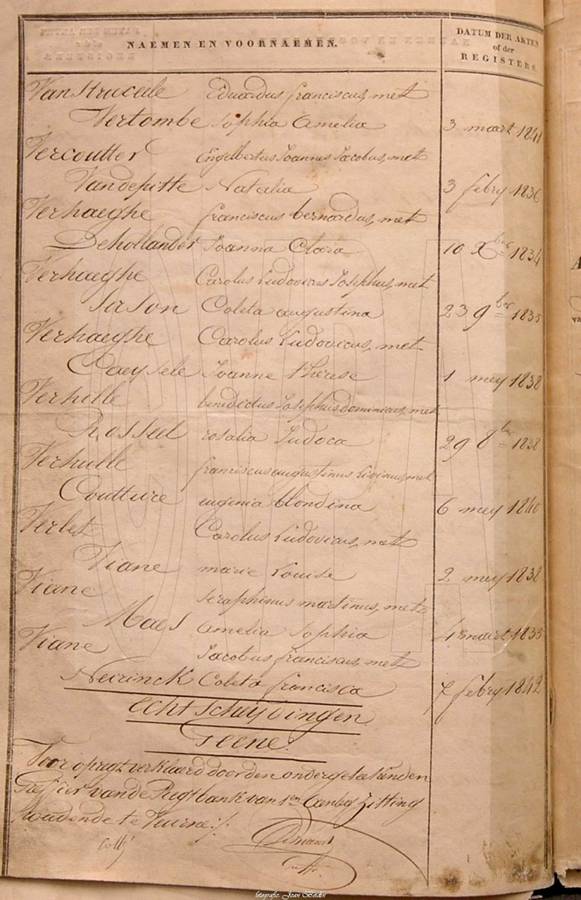 NAEMEN EN VOORNAEMEN.
DATUM DER AKTEN
of der
REGISTERS.
Van Struccele Eduardus franciscus, met
Vertombe Sophia Amelia 3 maart 1841
Vercoutter Engelbertus Joannes Jacobus, met
Vandepitte Natalia 3 febry 1836
Verhaeghe franciscus bernardus, met
Dehollander Joanna Clara 10 Xbre 1834
Verhaeghe Carolus Ludovicus Josephus, met
Coleta augustina 23 9bre 1835
Verhaeghe Carolus Ludovicus, met
Joanne therese 1 mey 1838
Verhille benedictus Josephus dominicus, met
Rosseel rosalia Judoca 29 8bre 1838
Verhulle franciscus augustinus Livinus, met
Coutture eugenia blondina 6 mey 1840
Verlet Carolus Ludovicus, met
Viane marie Louise 2 mey 1838
Viane seraphinus martinus, met
Maes Amelia Sophia 4 maart 1835
Viane Jacobus franciscus, met
Neirinck Coleta francisca 7 febry 1842
Echtscheydingen
Geene.
Voor opregt verklaard door den ondergetekenden
Greffier van de Regtbank van 1en Aenleg Zitting
houdende te Veurne
fotografie: Joan Bolder